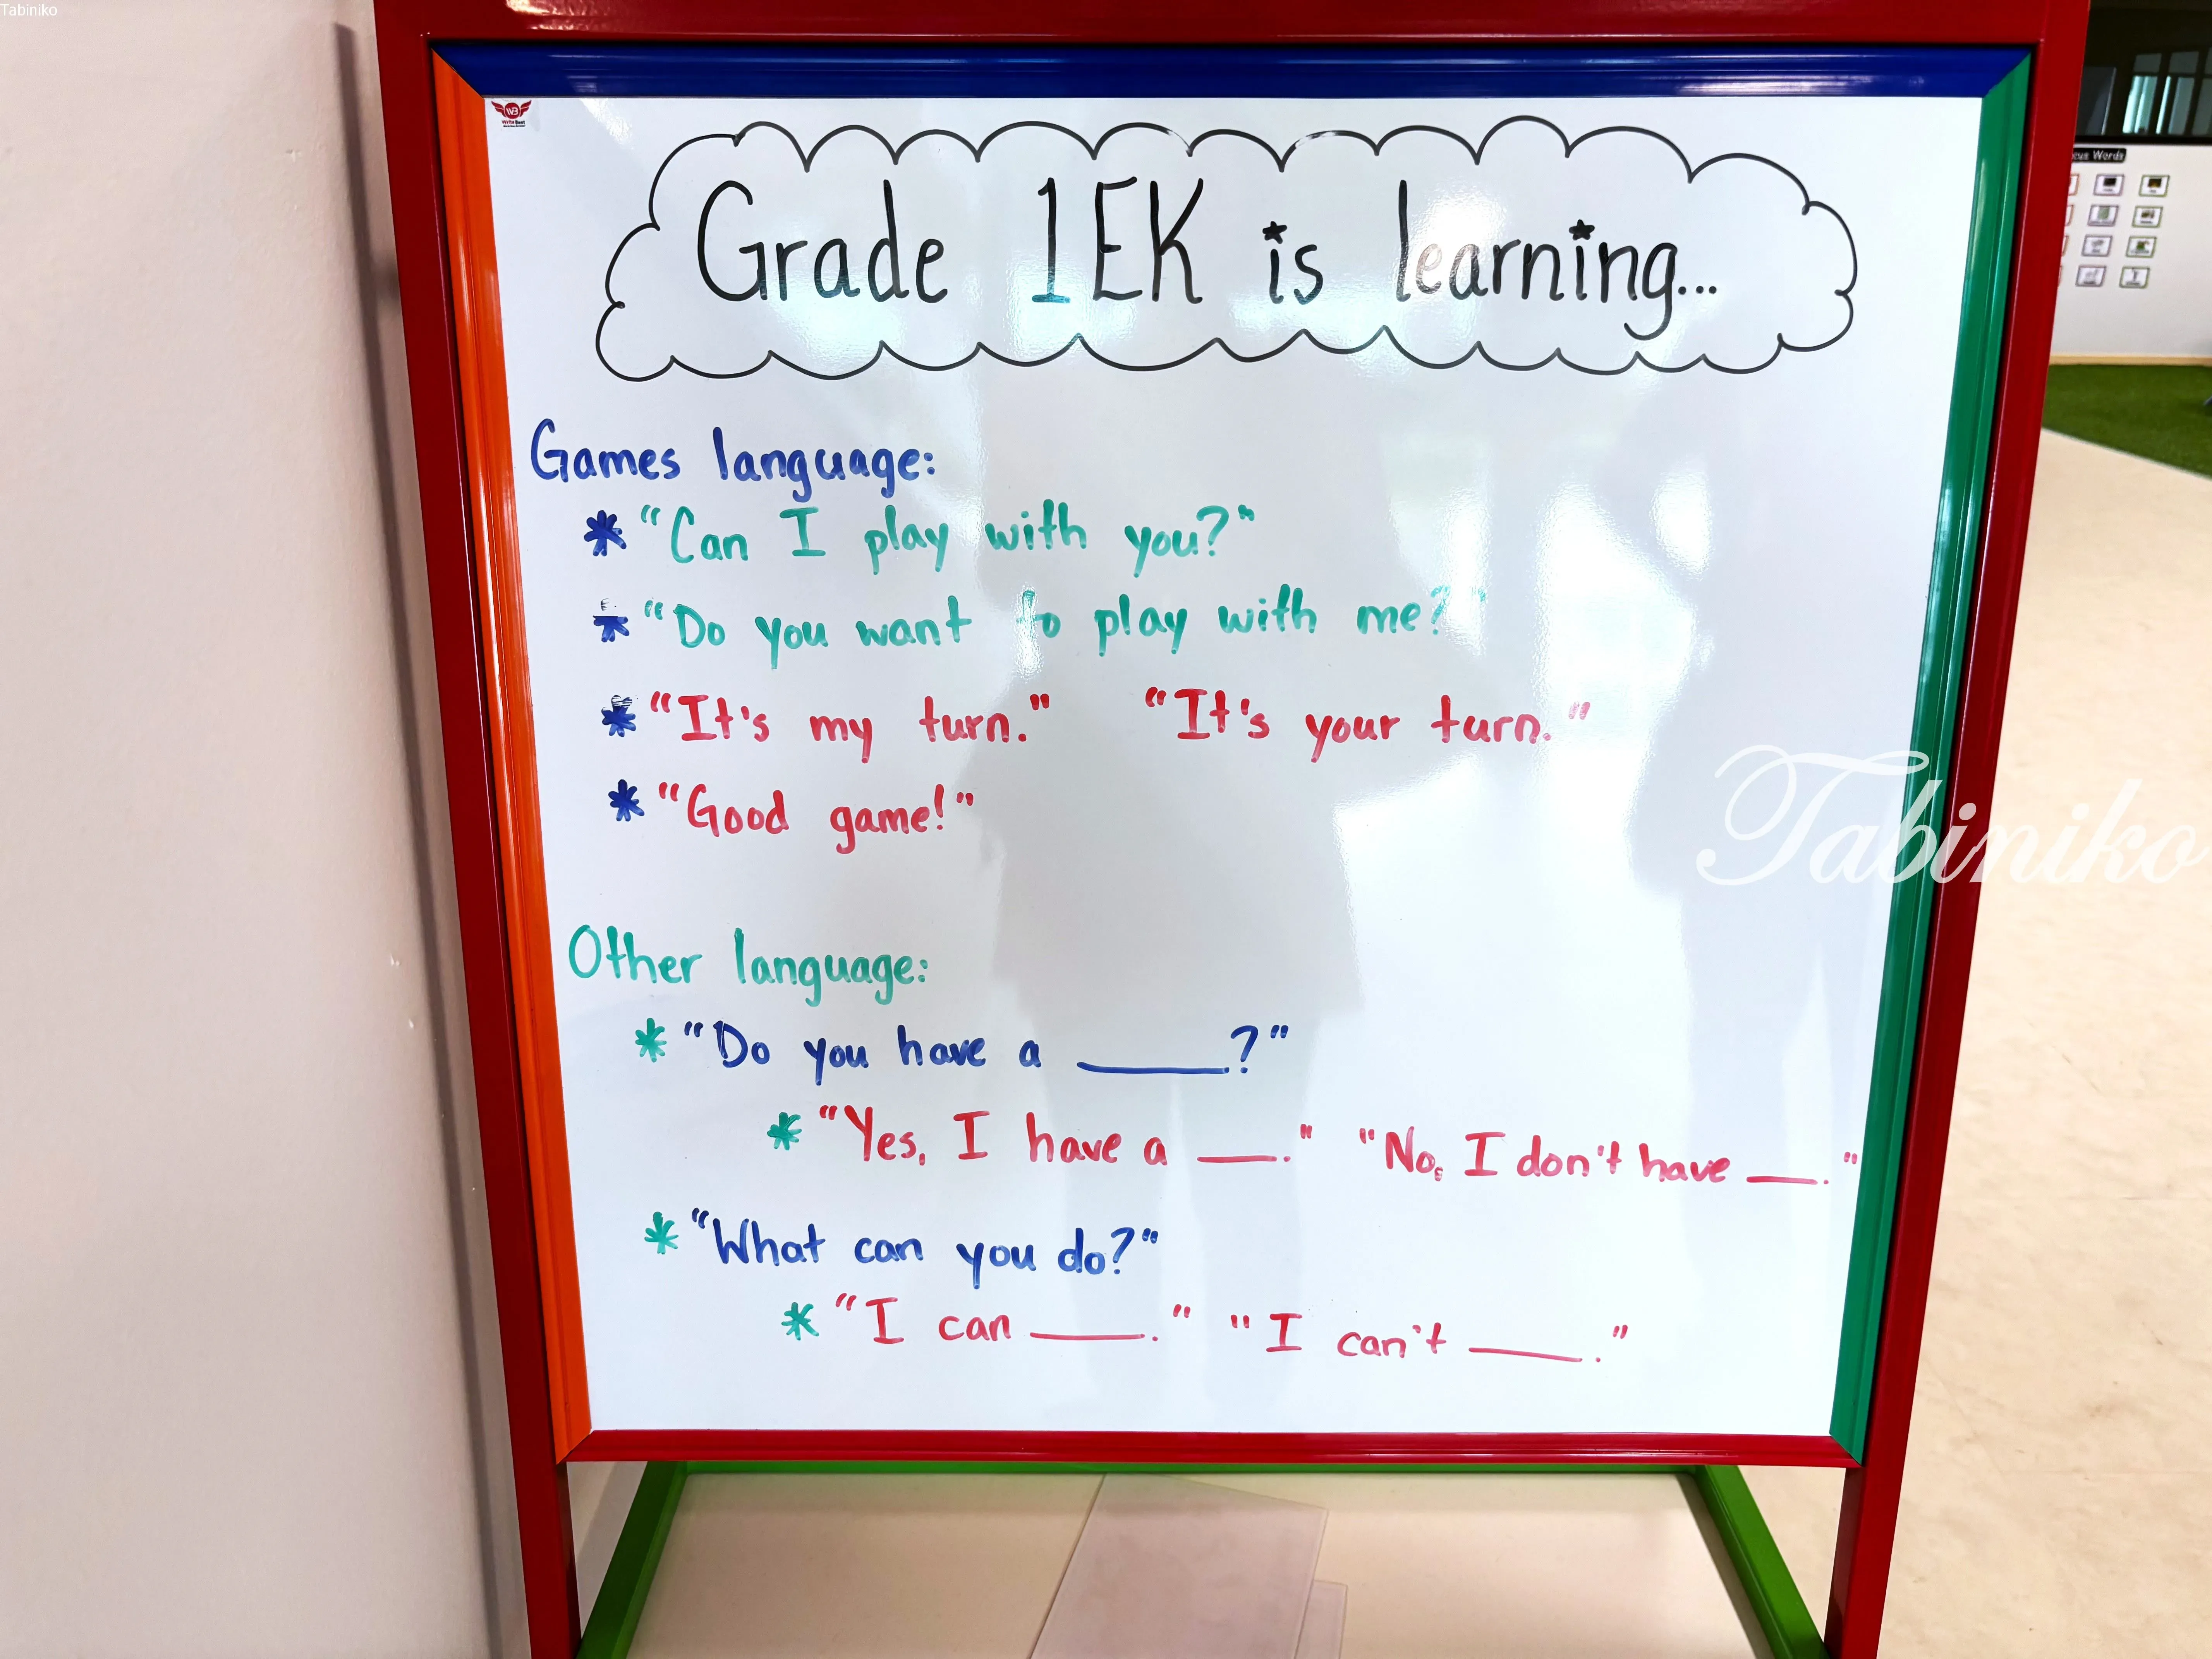 Tabiniko
Grade 1EK is learning...
Games language:
* "Can I play with you?"
* "Do you want to play with me?"
* "It's my turn." "It's your turn."
* "Good game!"
Tabiniko
Other language:
* "Do you have a _____?"
* "Yes, I have a ___." "No, I don't have ___."
* "What can you do?"
* "I can ____." "I can't ____."
Words